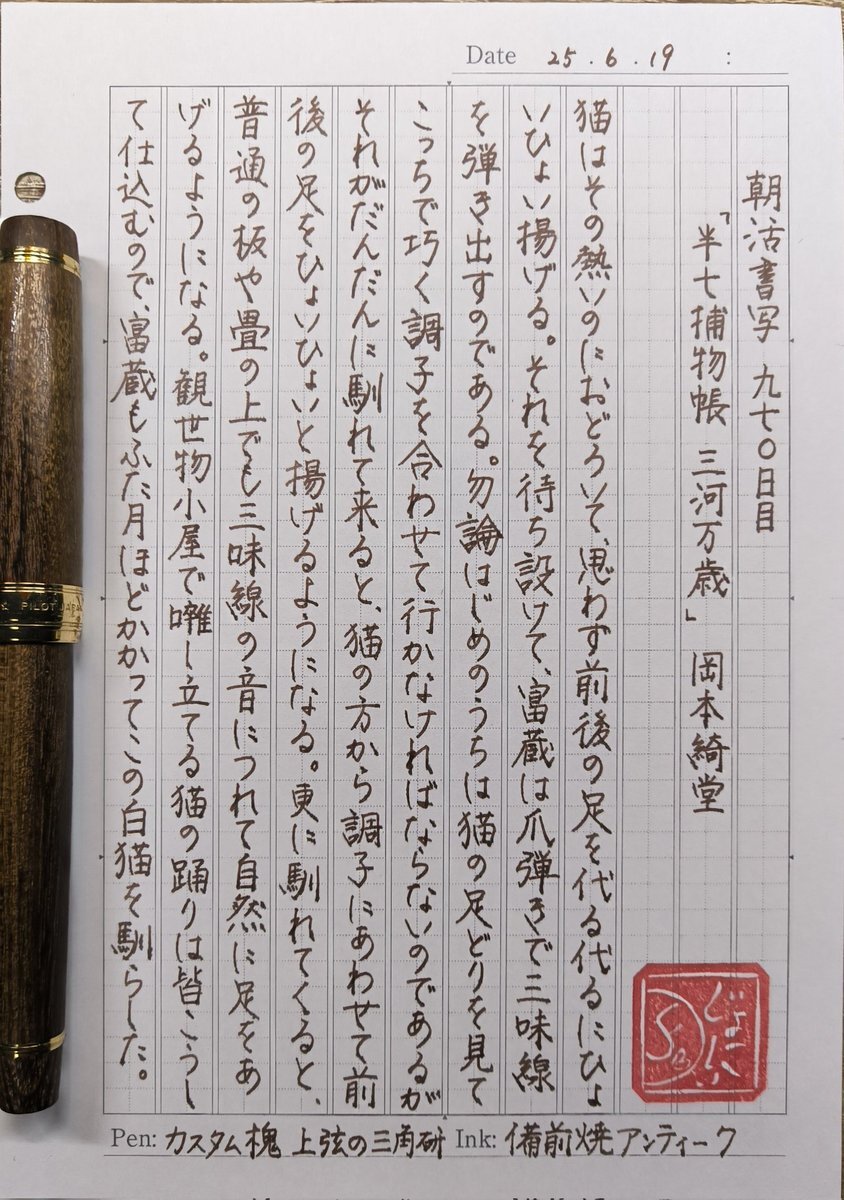 Date 25.6.19 :
朝活書写 九七〇日目
「半七捕物帳 三河万歳」 岡本綺堂
猫はその熱いのにおどろいて、思わず前後の足を代る代るにひょ
いひょい揚げる。それを待ち設けて、富蔵は爪弾きで三味線
を弾き出すのである。勿論はじめのうちは猫の足どりを見て
こっちで巧く調子を合わせて行かなければならないのであるが
それがだんだんに馴れて来ると、猫の方から調子にあわせて前
後の足をひょいひょいと揚げるようになる。更に馴れてくると、
普通の板や畳の上でも三味線の音につれて自然に足をあ
げるようになる。観世物小屋で囃し立てる猫の踊りは皆こうし
て仕込むので、富蔵もふた月ほどかかってこの白猫を馴らした。
Pen: カスタム槐 上弦の三角研 Ink: 備前焼アンティーク
PILOT JAPAN